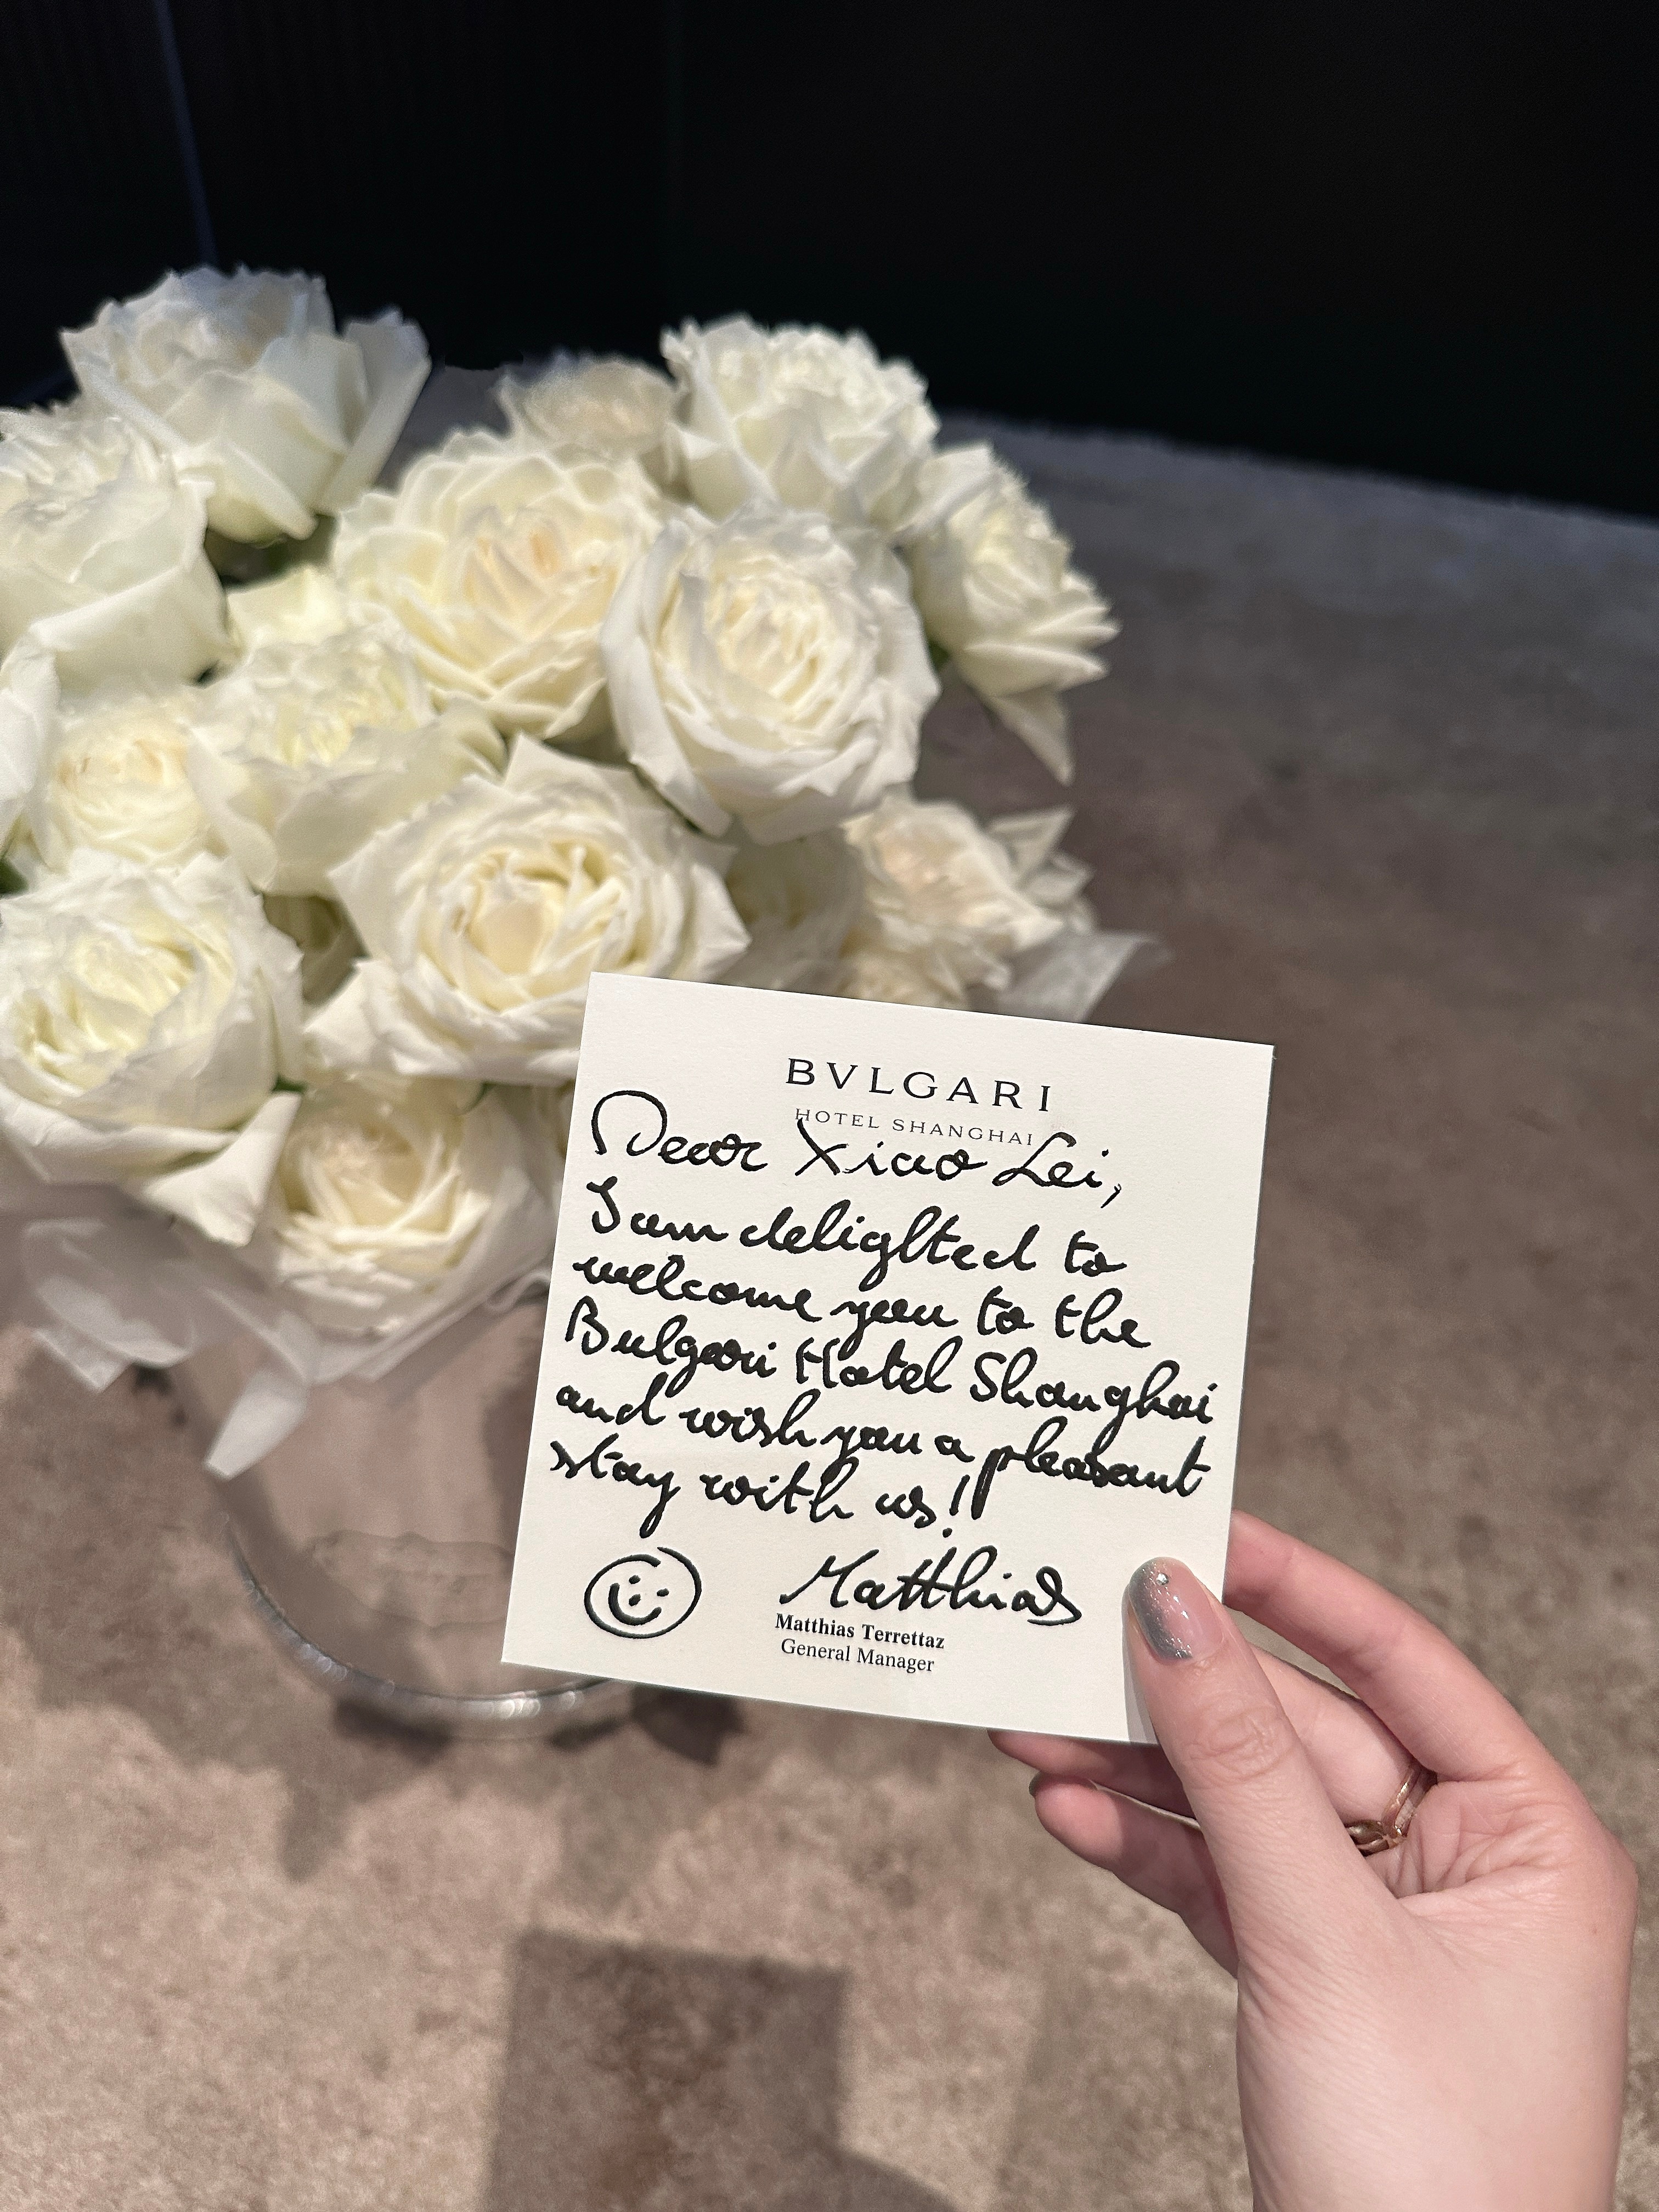 BVLGARI
HOTEL SHANGHAI
Dear Xiao Lei,
I am delighted to
welcome you to the
Bulgari Hotel Shanghai
and wish you a pleasant
stay with us!
Matthias
Matthias Terrettaz
General Manager